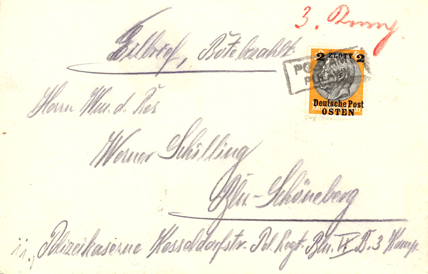 3.
Eilbrief, Bote bezahlt.
2 ZŁOTY 2
Deutsche Post
OSTEN
Herrn Wm. d. Res
Werner Schilling
Bln-Schöneberg
Polizeikaserne Pol. Regt. Bln. 3